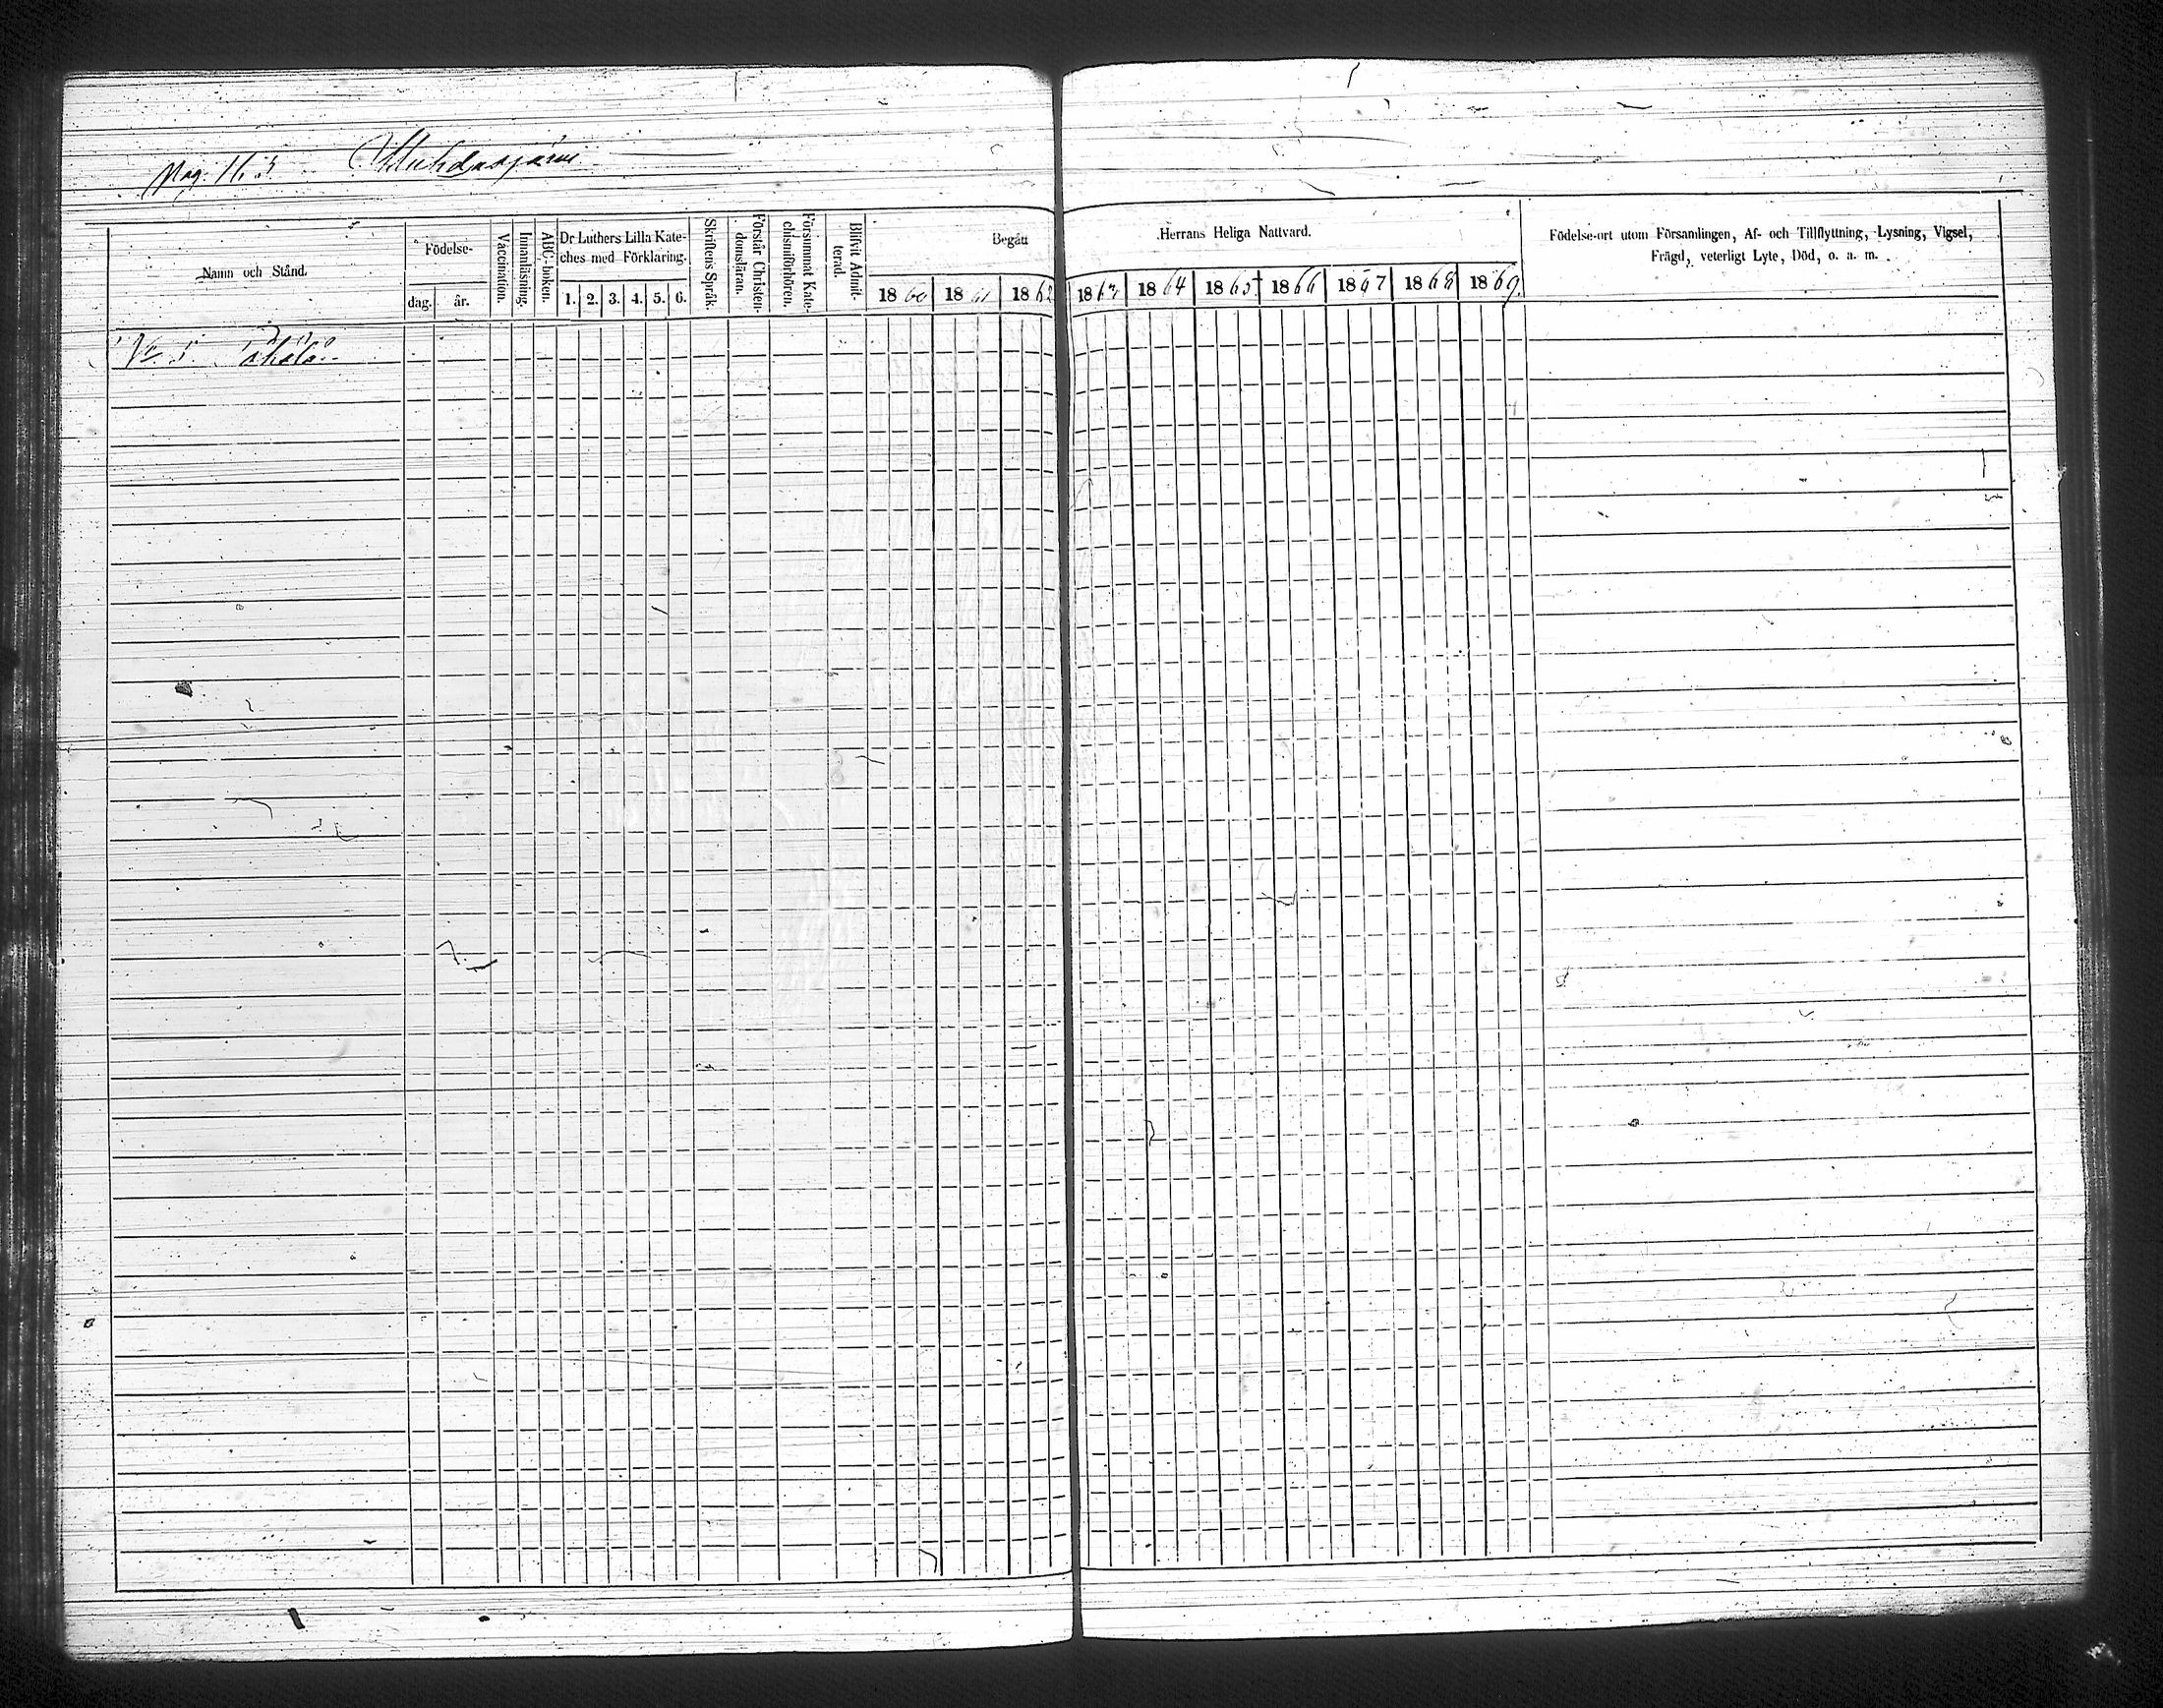 Pag. 115.
Namn och Stånd.
Födelse-
dag.
år.
Vaccination.
Innanläsning.
ABC-boken.
Dr Luthers Lilla Kate-
ches med Förklaring.
1. 2. 3. 4. 5. 6.
Skriftens Språk.
Förstår Christen-
domsläran.
Försummat Kate-
chismiförhören.
Blifvit Admit-
terad.
Begått Herrans Heliga Nattvard.
1860 1861 1862 1863 1864 1865 1866 1867 1868 1869.
Födelse-ort utom Församlingen, Af- och Tillflyttning, Lysning, Vigsel,
Frägd, veterligt Lyte, Död, o. a. m.
№ 5.